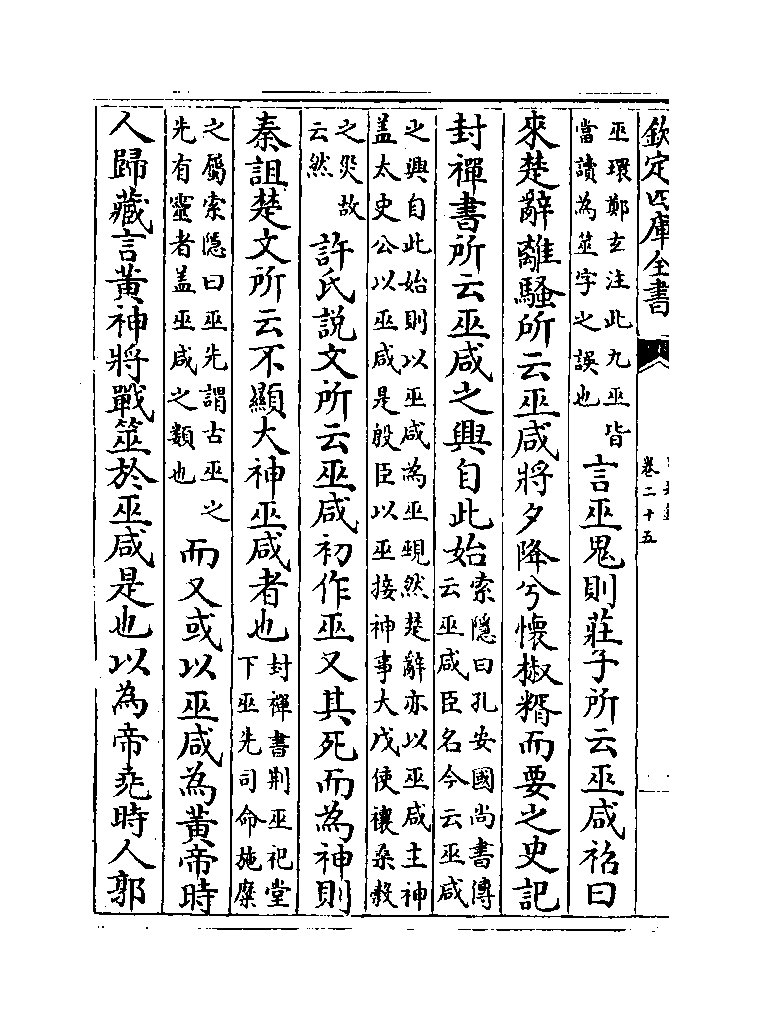 欽定四庫全書
卷二十五
巫環鄭玄注此九巫皆
當讀為筮字之誤也
言巫鬼則莊子所云巫咸祒曰
來楚辭離騷所云巫咸將夕降兮懷椒糈而要之史記
封禪書所云巫咸之興自此始
索隱曰孔安國尚書傳
云巫咸臣名今云巫咸
之興自此始則以巫咸為巫覡然楚辭亦以巫咸主神
盖太史公以巫咸是殷臣以巫接神事大戊使禳桑穀
之災故
云然
許氏說文所云巫咸初作巫又其死而為神則
秦詛楚文所云不顯大神巫咸者也
封禪書荆巫祀堂
下巫先司命施糜
之屬索隱曰巫先謂古巫之
先有靈者盖巫咸之類也
而又或以巫咸為黃帝時
人歸藏言黃神將戰筮於巫咸是也以為帝堯時人郭